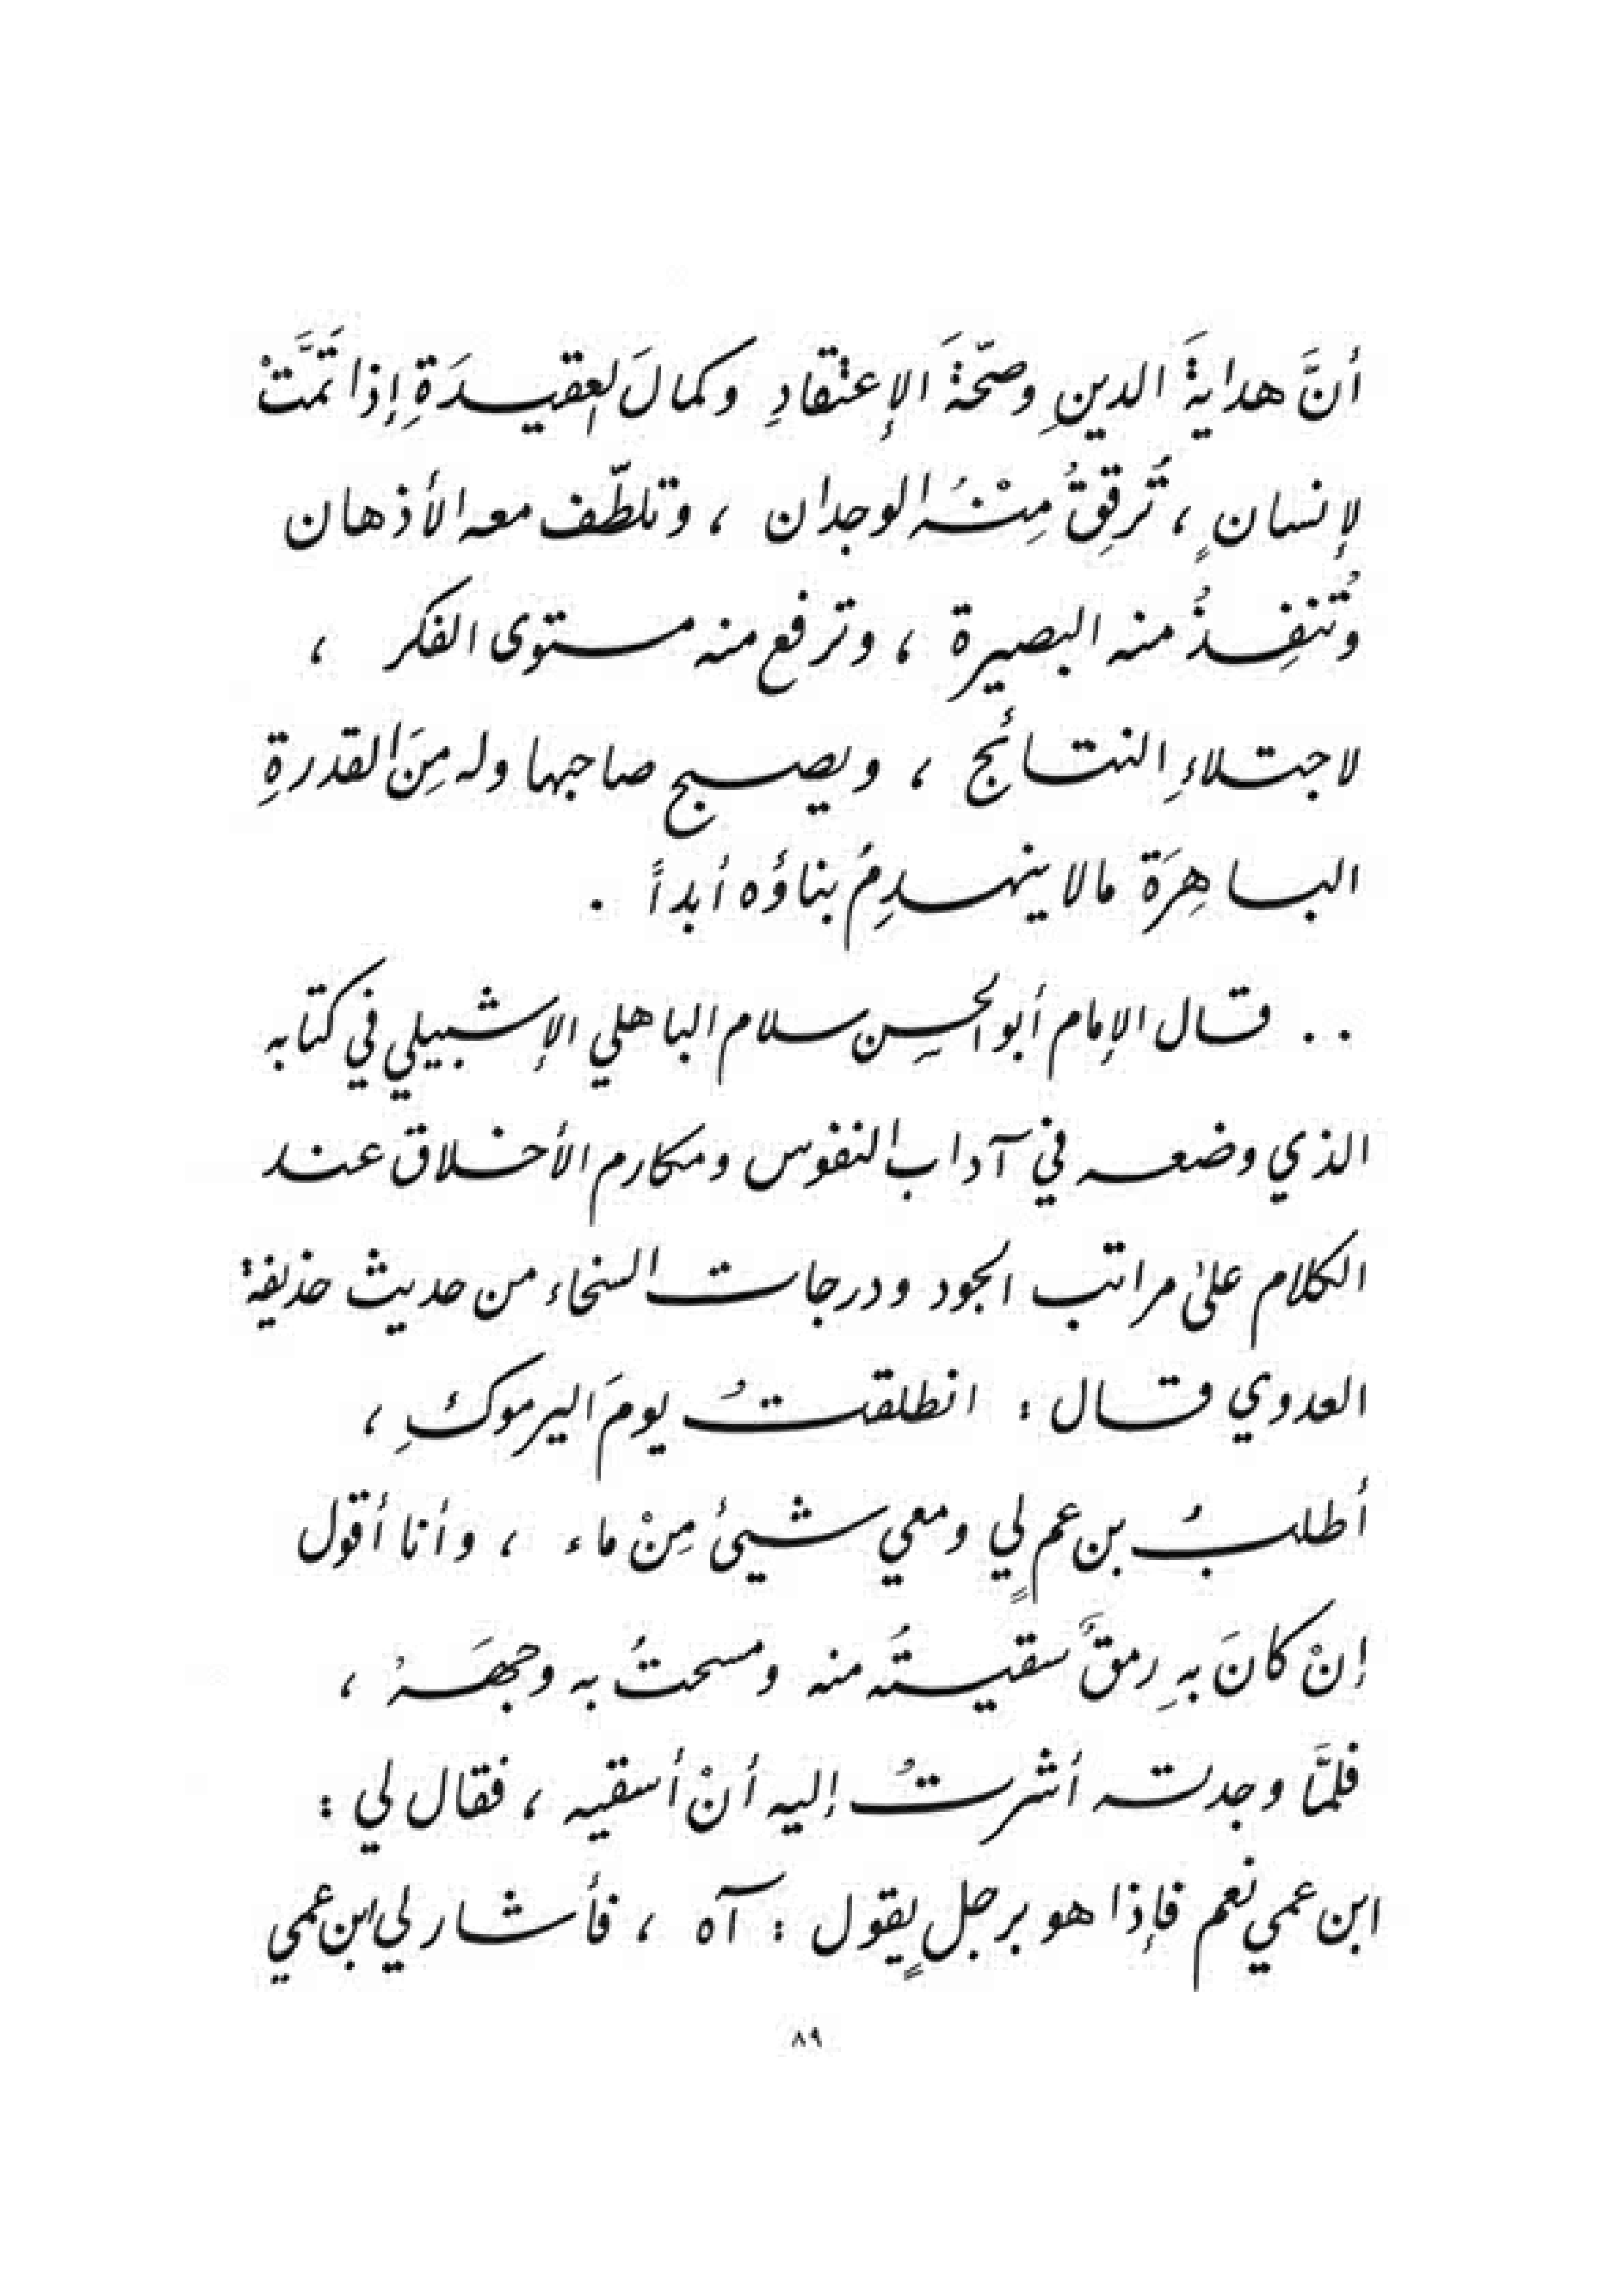 أنَّ هدايةَ الدينِ وصحّةَ الإعتقادِ وكمالَ العقيدَةِ إذا تَمَّتْ
لإنسانٍ ، تُرقِقُ مِنْهُ الوجدان ، وتلطّف معه الأذهان
وُتنفِذُ منه البصيرة ، وترفع منه مستوى الفكر ،
لاجتلاءِ النتائج ، ويصبح صاحبها وله مِنَ القدرةِ
الباهِرَة مالا ينهدِمُ بناؤه أبداً .
. . قال الإمام أبو الحسن سلام الباهلي الإشبيلي في كتابه
الذي وضعه في آداب النفوس ومكارم الأخلاق عند
الكلام على مراتب الجود ودرجات السخاء من حديث حذيفة
العدوي قال : انطلقتُ يومَ اليرموكِ ،
أطلبُ بن عمٍ لي ومعي شيئ مِنْ ماء ، وأنا أقول
إنْ كانَ بهِ رمقٌ سقيتُه منه ومسحتُ به وجهَهُ ،
فلمَّا وجدته أشرتُ إليه أنْ أسقيه ، فقال لي :
ابن عمي نعم فإذا هو برجلٍ يقول : آه ، فأشار لي ابن عمي
٨٩